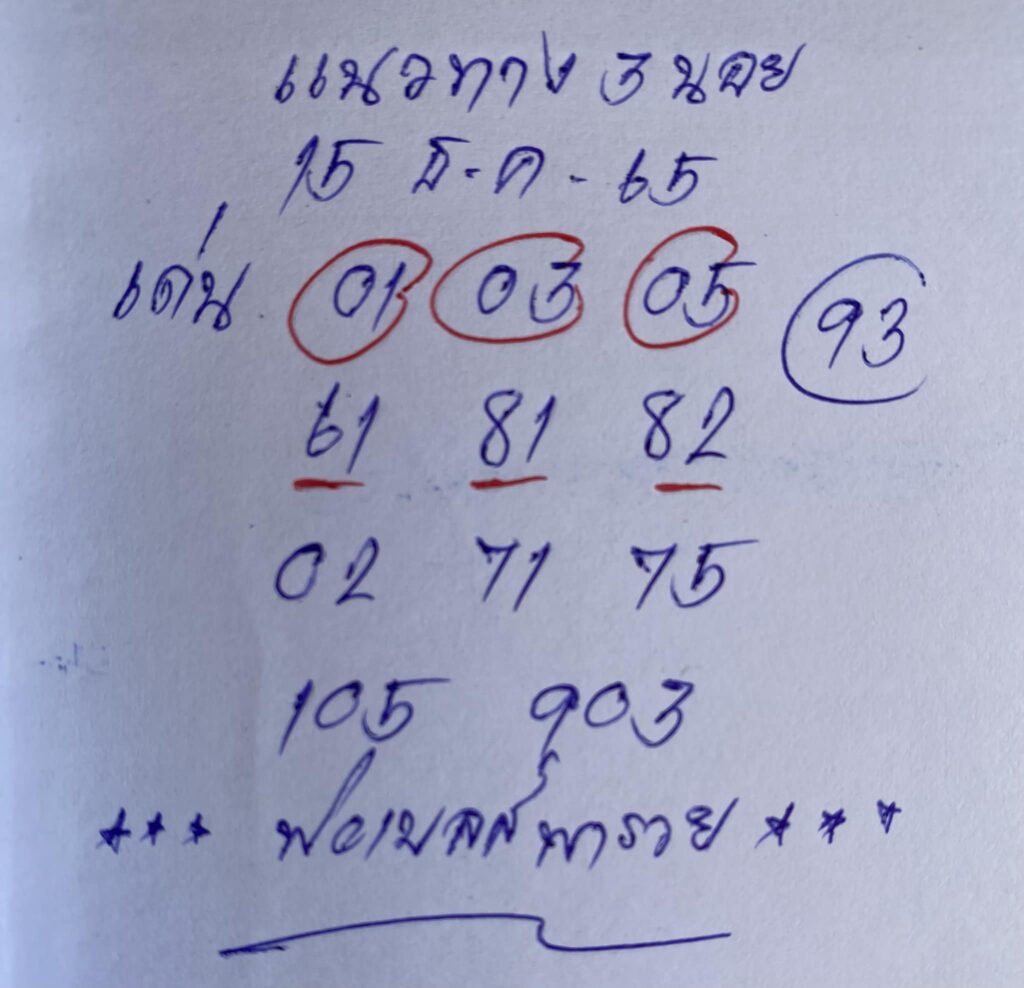 แนวทาง 3 นอย
15 ธ.ค. 65
เด่น 01 03 05 93
61 81 82
02 71 75
105 903
*** ฟอเบลส์พารวย ***